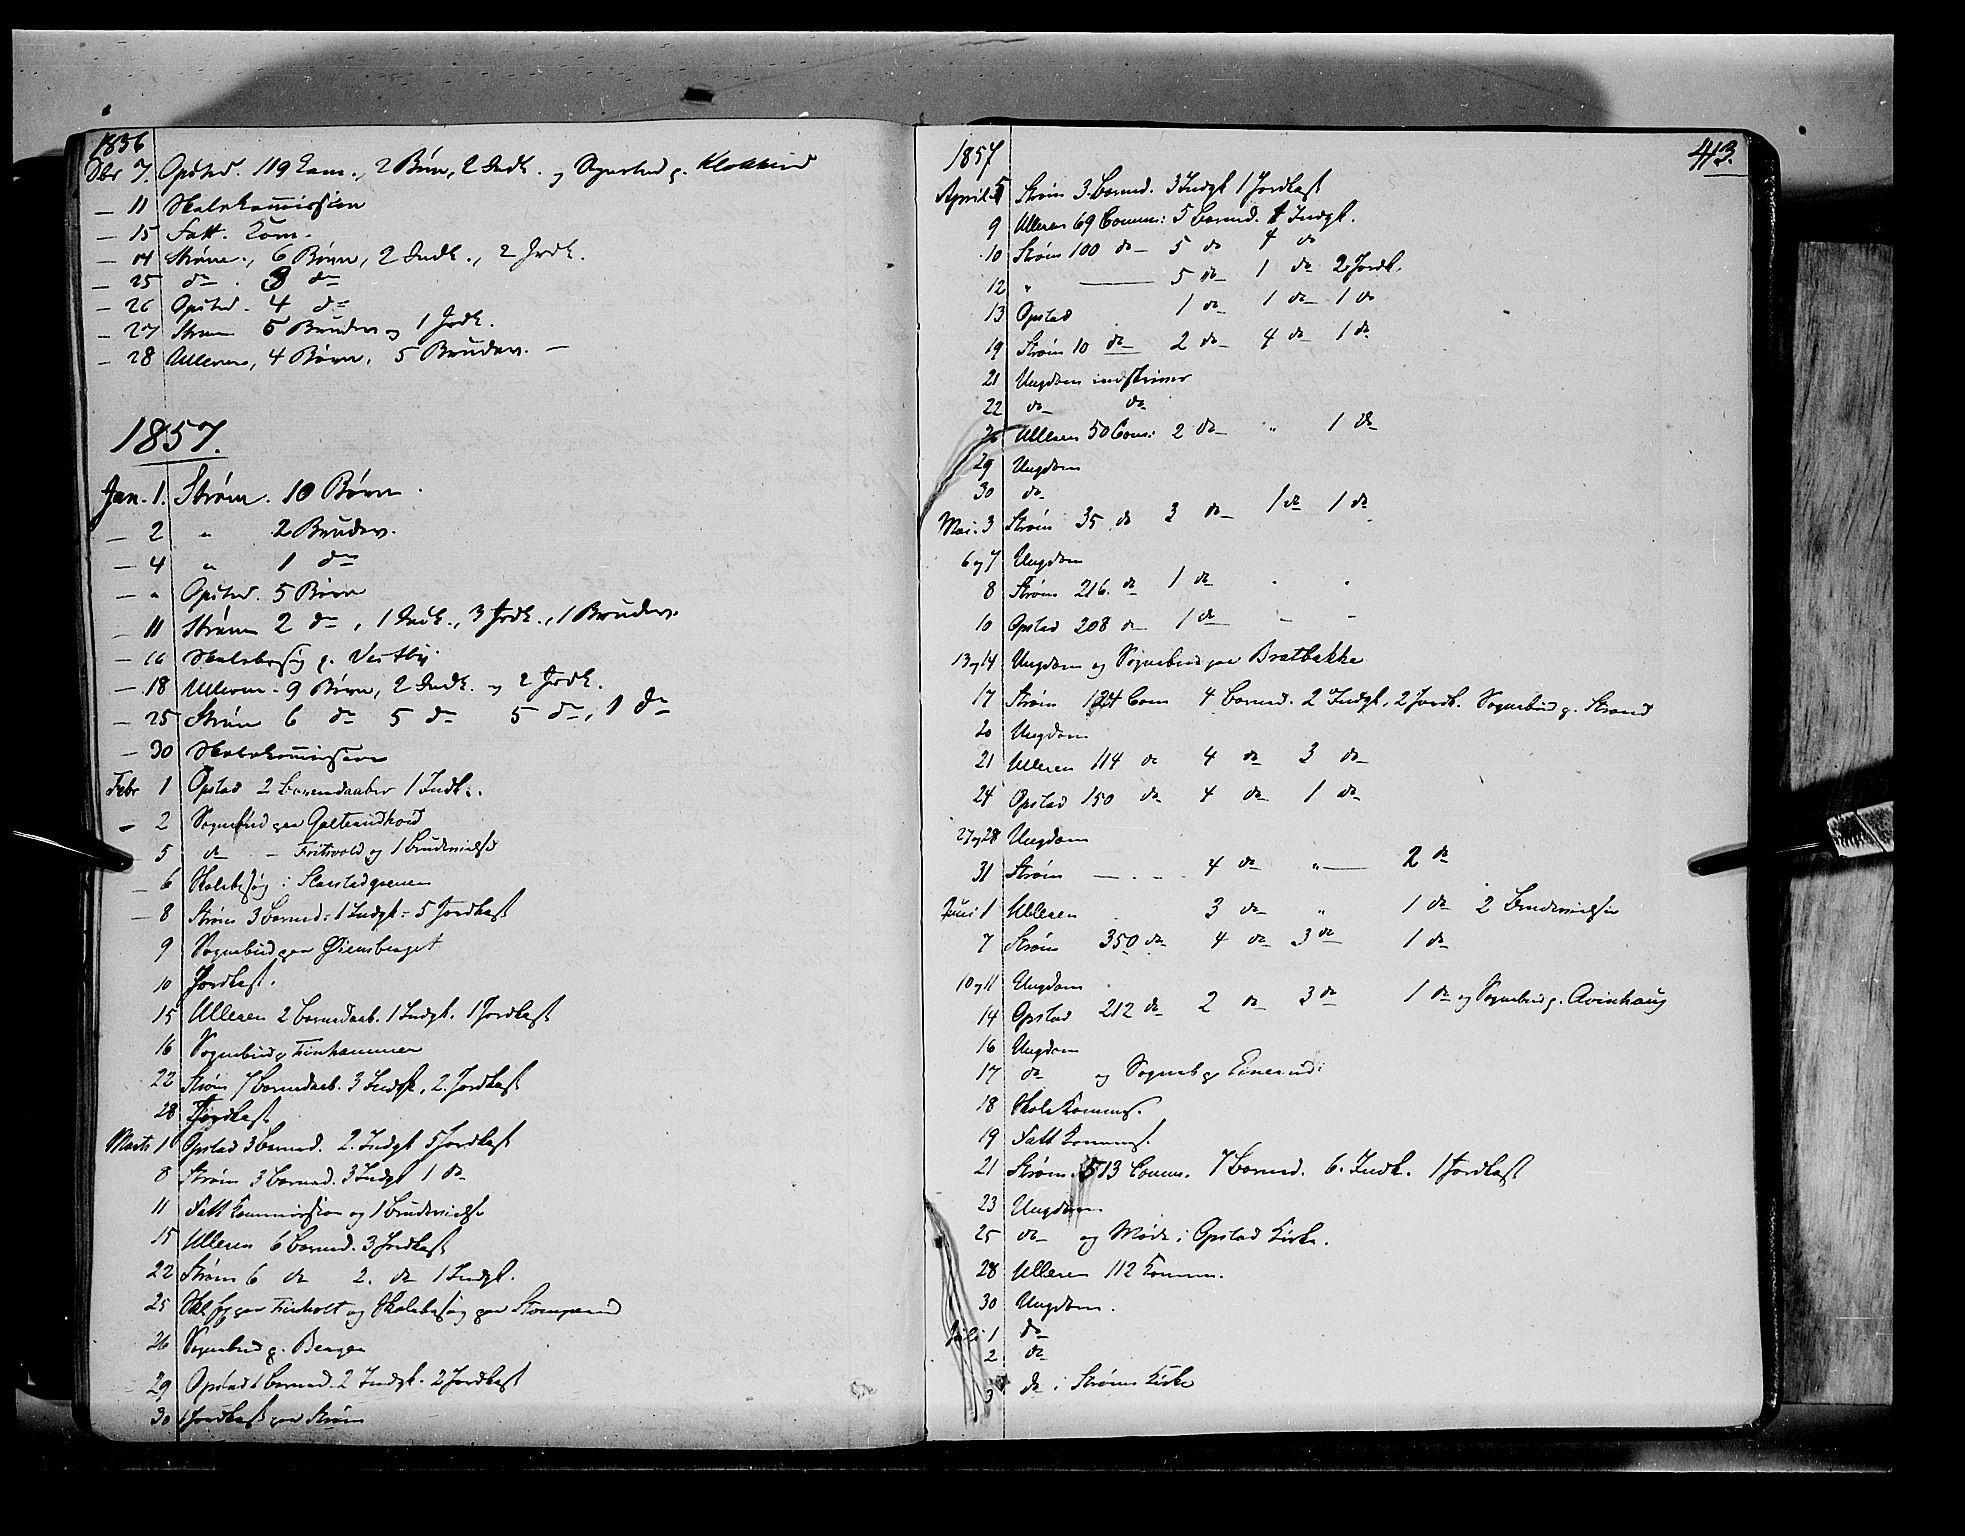 1856
Dbr 7. Opstad. 119 Kom., 2 Børn, 2 Indl. og Sognebud p. Klokkerud
— 11 Skolekommission
— 15 Fatt. Kom.
— 14 Strøm., 6 Børn, 2 Indl., 2 Jrdk.
— 25 do . 3 do
— 26 Opstad. 4 do
— 27 Strøm 5 Brudev. og 1 Jrdk.
— 28 Ulleren, 4 Børn, 5 Brudev. —
1857.
Jan. 1. Strøm. 10 Børn.
— 2 " 2 Brudev.
— 4 " 1 do
— " Opstad. 5 Børn
— 11 Strøm 2 do, 1 Indl., 3 Jrdk., 1 Brudev.
— 16 Skolebesøg p. Vestby
— 18 Ulleren. 9 Børn, 2 Indl. og 2 Jrdk.
— 25 Strøm 6 do 5 do 5 do, 1 do
— 30 Skolekommission
Febr 1 Opstad 2 Barnedaaber 1 Indl.
— 2 Sognebud paa
— 5 do — Fritsvold og 1 Brudevielse
— 6 Skolebesøg i
— 8 Strøm 3 Barned: 1 Indgk: 5 Jordkast
9 Sognebud paa Øiensberget
10 Jordkast.
15 Ulleren 2 Barnedaab. 1 Indgk. 1 Jordkast
16 Sognebud p Finhammer
22 Strøm 7 Barnedaab. 3 Indgk, 2. Jordkast
28 Jordkast
Marts 1 Opstad 3 Barned. 2. Indgk 5 Jordkast
8 Strøm 3 Barned. 3 Indgk 1 do
11 Fatt Kommission og 1 Brudevielse
15 Ulleren 6 Barned. 3 Jordkast
22 Strøm 6 do 2. do 1 Indgk.
25 paa Finholt og Skolebesøg paa
26 Sognebud p. Berger
29 Opstad 1 Barned. 2 Indgk. 2 Jordkast
30 Jordkast paa Strøm
1857
413.
April 5 Strøm 3. Barned. 3 Indgk 1 Jordkast
9 Ulleren 69 Comm: 5 Barned. 1 Indgk.
10 Strøm 100 do 5 do 4 do
12 " —— 5 do 1 do 2 Jordk.
13 Opstad 1 do 1 do 1 do
19 Strøm 10 do 2 do 4 do 1 do
21 Ungdom indskriver
22 do do
26 Ulleren 50 Com: 2 do " 1 do
29 Ungdom
30 do
Mai. 3 Strøm 35 do 3 do 1 do 1 do
6 og 7 Ungdom
8 Strøm 216. do 1 do " "
10 Opstad 208 do 1 do — —
13 og 14 Ungdom og Sognebud paa Bratbakke
17 Strøm 124 Com 4 Barned. 2 Indgk, 2 Jordk. Sognebud p. Strand
20 Ungdom
21 Ulleren 114 do 4 do 3 do
24 Opstad 150 do 4 do 1 do
27 og 28 Ungdom
31 Strøm — . - . 4 do " — 2 do
Juni 1 Ulleren 3 do " 1 do 2 Brudevielser
7 Strøm 350 do 4 do 3 do 1 do
10 og 11 Ungdom
14 Opstad 212 do 2 do 3 do 1 do og Sognebud p. Avinhaug
16 Ungdom
17 do og Sogneb p
18 Skole Komms.
19 Fatt Komms.
21 Strøm. 513 Comm. 7 Barned. 6. Indk. 1 Jordkast
23 Ungdom
25 do og Møde i Opstad Kirke.
28 Ulleren 112 Komm.
30 Ungdom.
Juli 1 do
2 do
3 do i Strøms Kirke